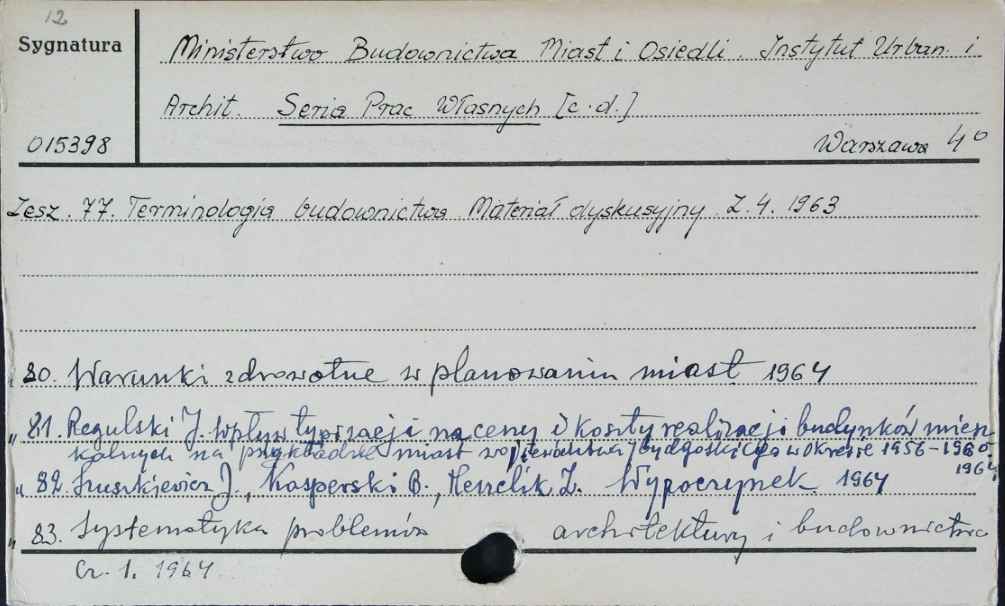 12
Sygnatura
Ministerstwo Budownictwa Miast i Osiedli. Instytut Urban. i
Archit. Seria Prac Własnych [c.d.]
015398
Warszawa 4°
Zesz. 77. Terminologia budownictwa. Materiał dyskusyjny. Z. 4. 1963
" 80. Warunki zdrowotne w planowaniu miast 1964
" 81. Regulski J. Wpływ typizacji na ceny i koszty realizacji budynków miesz
kalnych na przykładzie miast województwa bydgoskiego w okresie 1956-1960.
1964
" 82. Szuszkiewicz J., Kasperski B., Henclik Z. Wypoczynek. 1964
" 83. Systematyka problemów architektury i budownictwa
Cz. 1. 1964